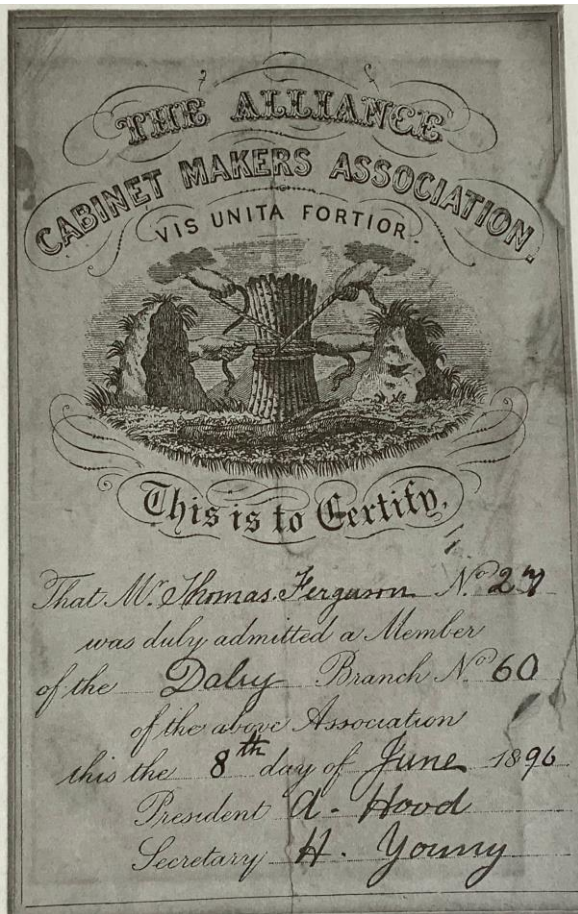 THE ALLIANCE
CABINET MAKERS ASSOCIATION.
VIS UNITA FORTIOR.
This is to Certify,
That Mr. Thomas Ferguson No. 27
was duly admitted a Member
of the Dalry Branch No. 60
of the above Association
this the 8th day of June 1896
President A. Hood
Secretary H. Young